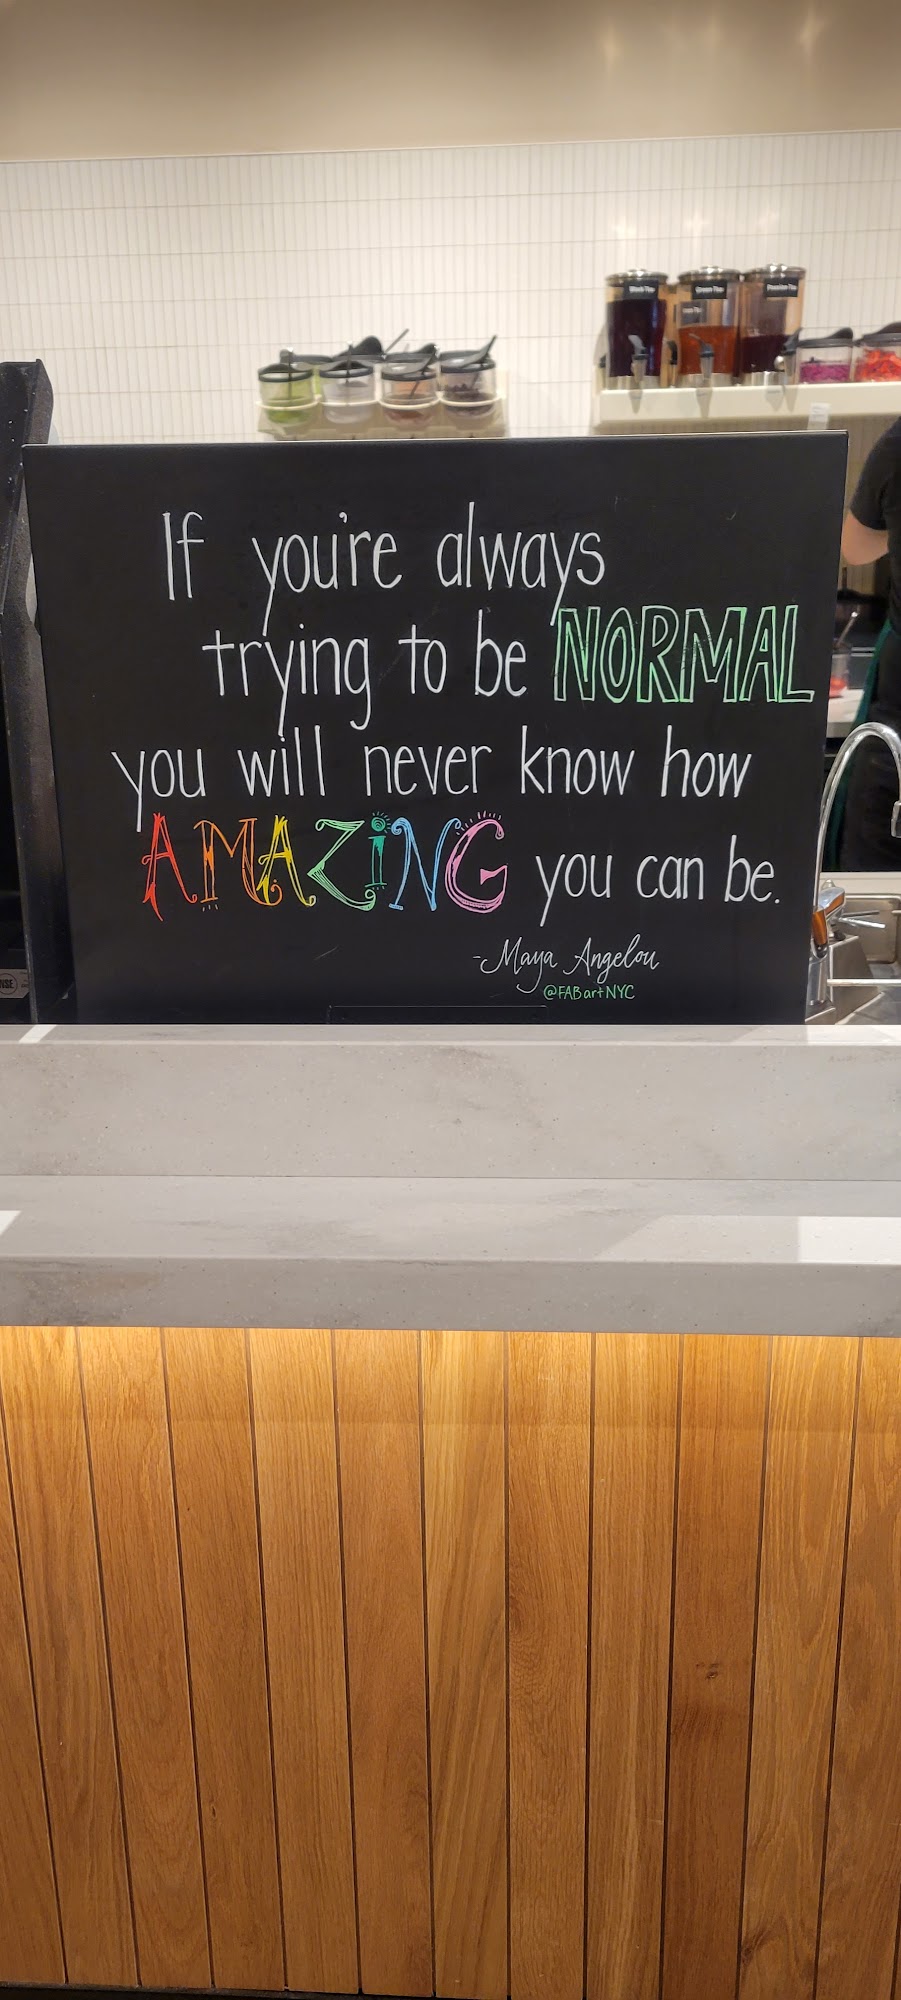 Black Tea
Green Tea
Passion Tea
If you're always
trying to be NORMAL
you will never know how
AMAZiNG you can be.
-Maya Angelou
@FABartNYC